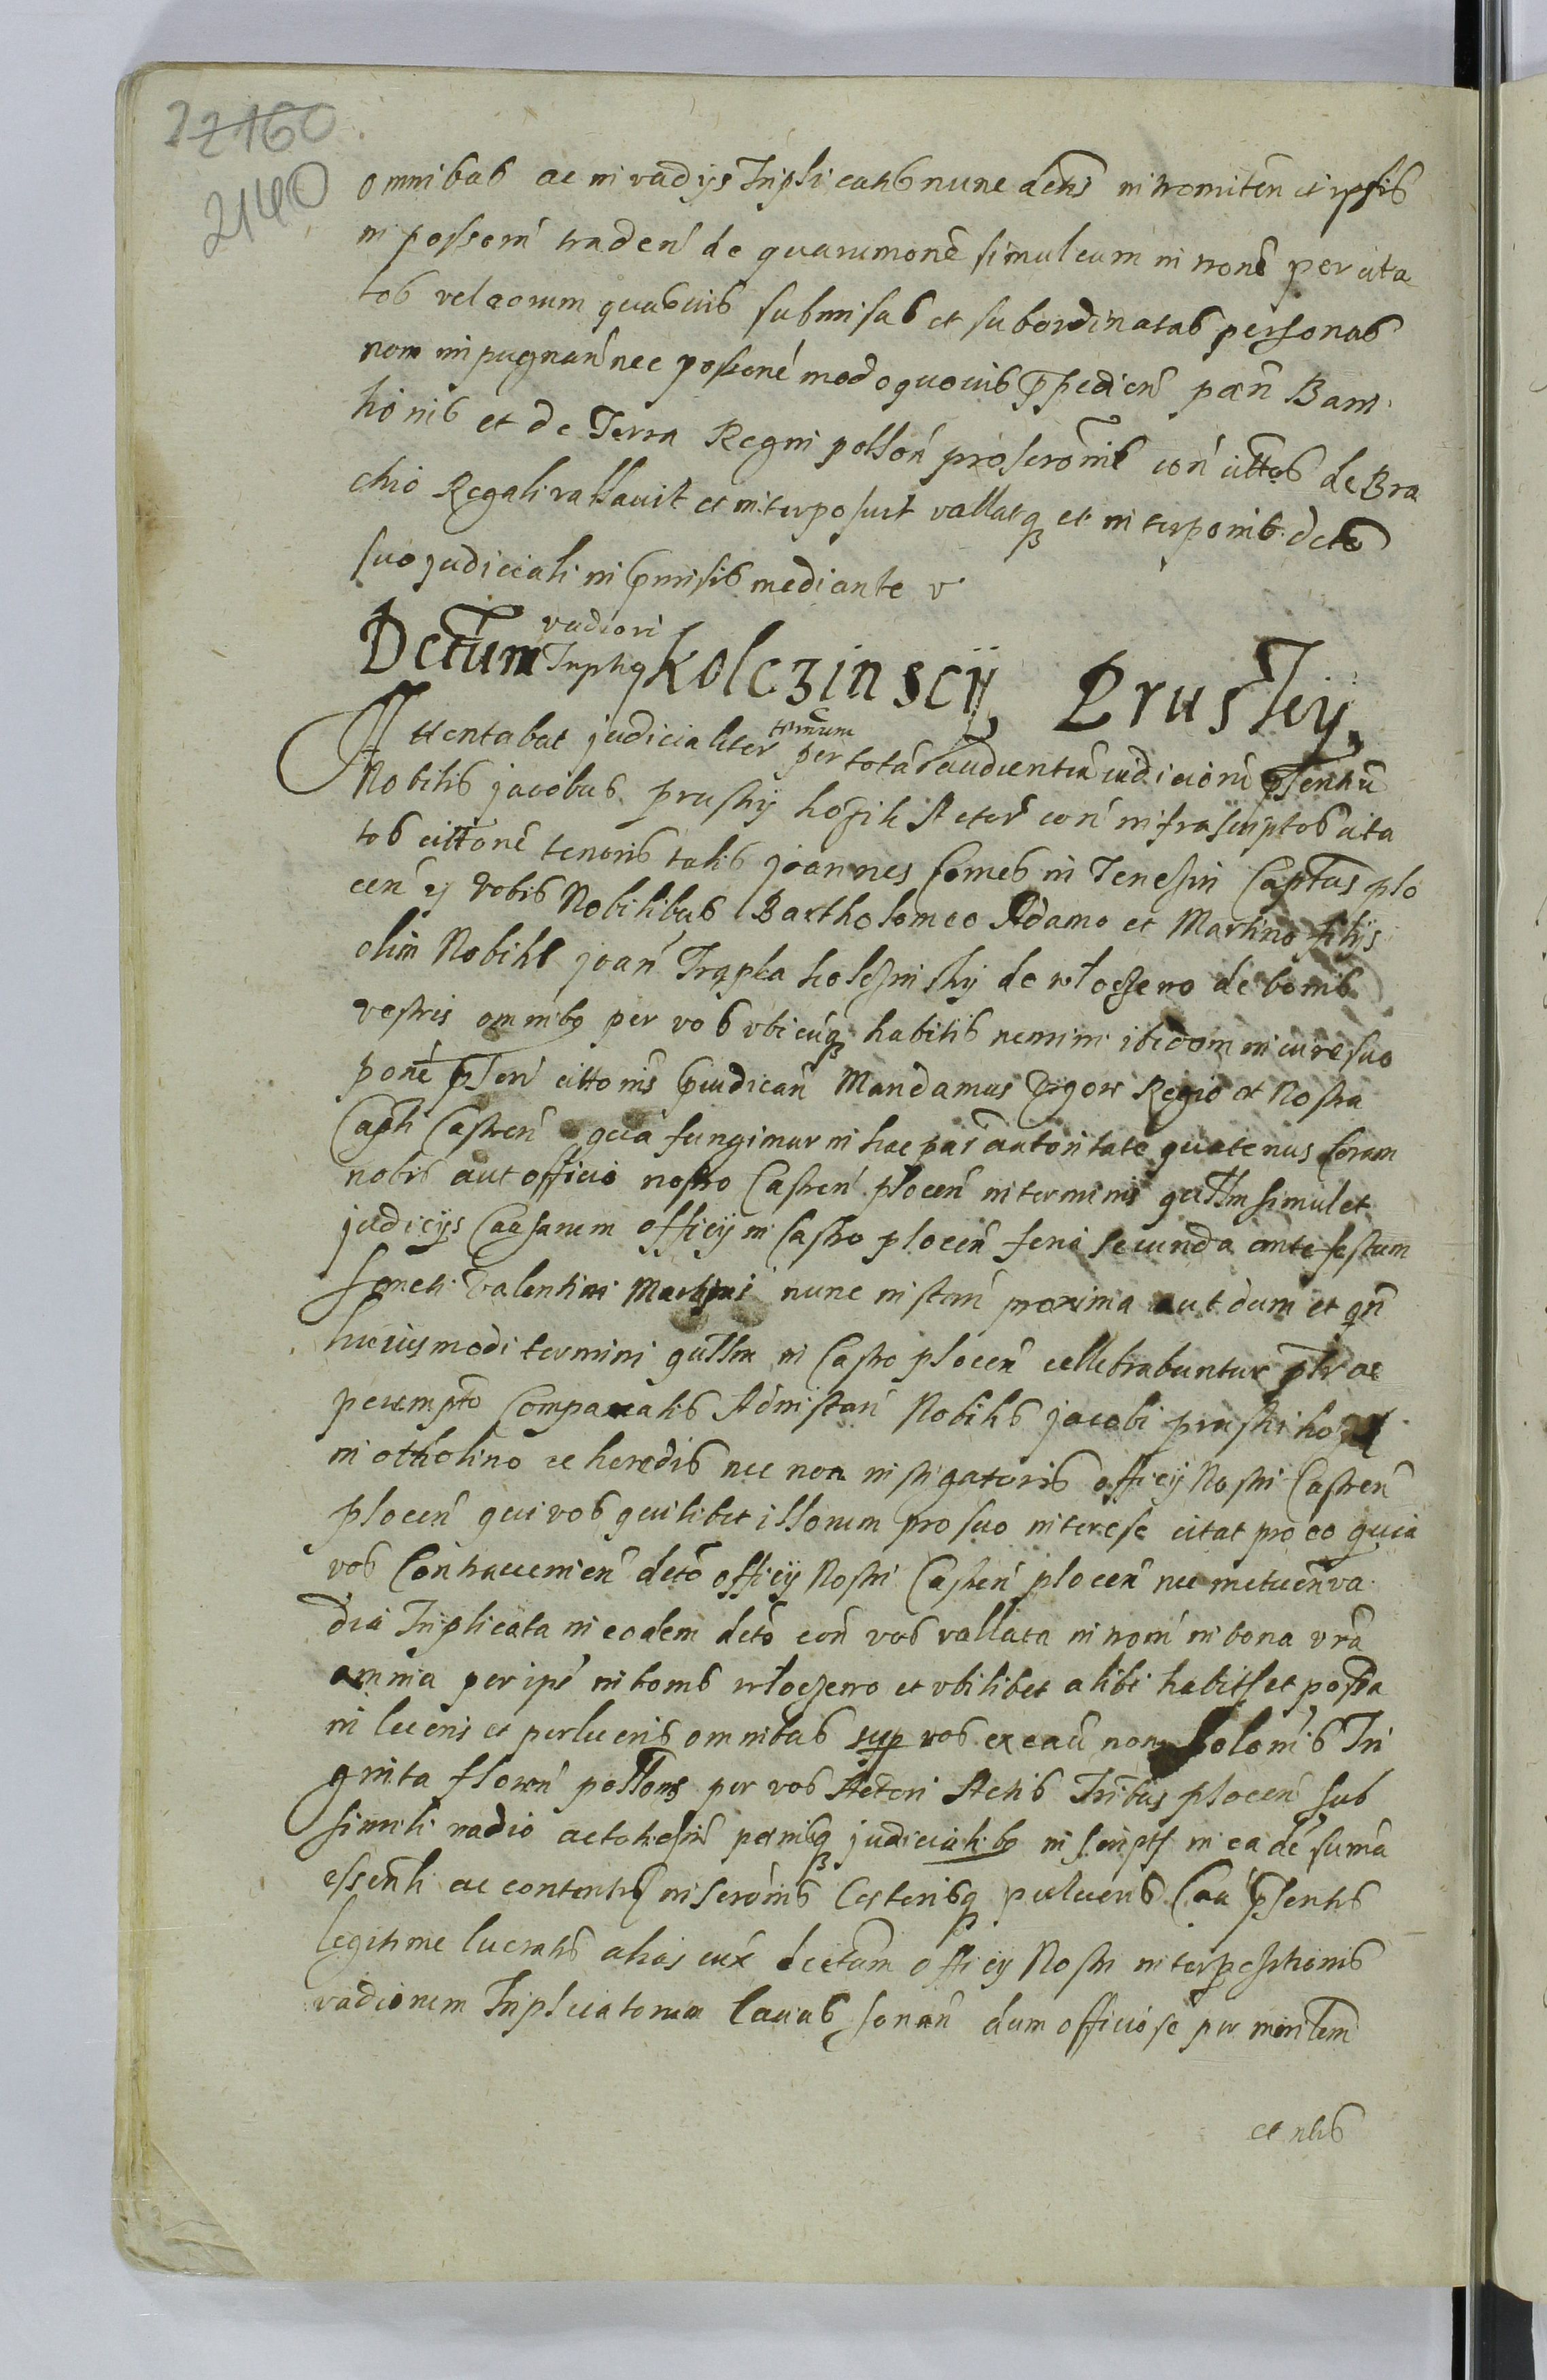 22160
2140
omnibus ac in vadys Triplicatis nunc decis intromiten et ipsis
in possem̃ traden̄ de quarum onē simul cum intronē per cita
tos vel eorum quasvis submisas et subordinatas personas
non impugnan̄ nec possone modo quovis ꝑpedien̄ pœn Bani
tionis et de Terra Regni possoñ proscrōnis con̄ cittos de Bra
chio Regali vallavit et interposuit vallatqꝫ et interponit deto
suo judiciali in p̄misis mediante v
Dectum vadiori Triplīq Kolczinscÿ Prusky
Attentabat judicialiter terminum per totā audientiā iudiciorū p̄sentiū
Nobilis jacobus prusky hozih Actor con̄ infrascriptos cita
tos cittonē tenoris talis joannes Comes in Tenczin Captus plo
cen̄ ꝫ vobis Nobilibus Bartholomeo Adamo et Martino filÿs
olim Nobilis joan̄ Trąpka kolczinsky de wloczewo de bonis
vestris omnibꝫ per vos vbicūqꝫ habitis nemini ibidem in iure suo
ponē p̄sen̄ cittonis p̄iudican̄ Mandamus Vigore Regio et Nostra
Captī Castren̄ qua fungimur in hac par̄ autoritate quatenus Coram
nobis aut officio nostro Castren̄ plocen̄ in terminis quttm̄ simulet
judicÿs Causarum officÿ in Castro plocen̄ feria secunda ante festum
Sancti Valentini Martyris nunc instan̄ proxima aut dum et qn̄
huiusmodi termini quttm̄ in Castro plocen̄ cellebrabuntur pt̄r ac
perempto Compareatis Ad instan̄ Nobilis jacobi pruski hozi
in otholino ac heredis nec non instigatoris officÿ Nostri Castren̄
plocen̄ qui vos quilibet illorum pro suo interesse citat pro eo quia
vos Contravenien̄ decto officÿ Nostri Castren̄ plocen̄ nec metuen̄ va
dia Triplicata in eodem decto con̄ vos vallata intron̄ in bona vr̄a
omnia per ipm̄ in bonis wloczewo et vbilibet alibi habita et possa
in lucris et perlucris omnibus sup vos ex caū non Solonis Tri
ginta floren̄ possons per vos Actori Actis Tribus plocen̄ sub
simili vadio actoticsm̄ penisqꝫ judicialibꝫ inscriptꝭ in eadē sumā
essentī ac contentꝭ inscrōnis Ceterisqꝫ perlucris Caū p̄sentis
legitime lucratis alias iux dectum officÿ Nostri interpositionis
vadiorum Triplicatorum Causas sonan̄ dum officiose per mintem
et nbis